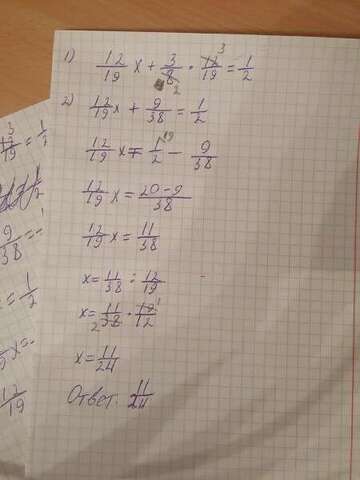 1) 12/19 x + 3/8 · 12/19 = 1/2
3
2
2) 12/19 x + 9/38 = 1/2
12/19 x = 1/2 - 9/38
19
12/19 x = 20-9/38
12/19 x = 11/38
x = 11/38 : 12/19
x = 11/38 · 19/12
2
1
x = 11/24
Ответ: 11/24
3
12/19 = 1/2
9/38 =
= 1/2
x =
12/19